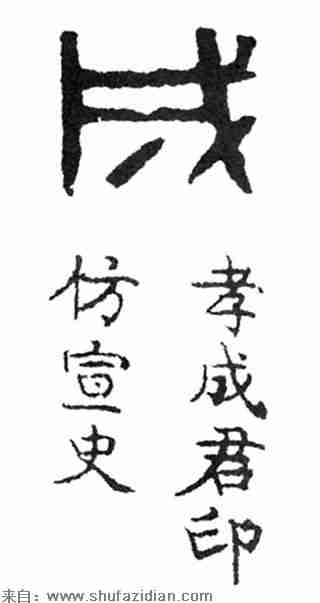 成
孝成君印
仿宣史
来自：www.shufazidian.com